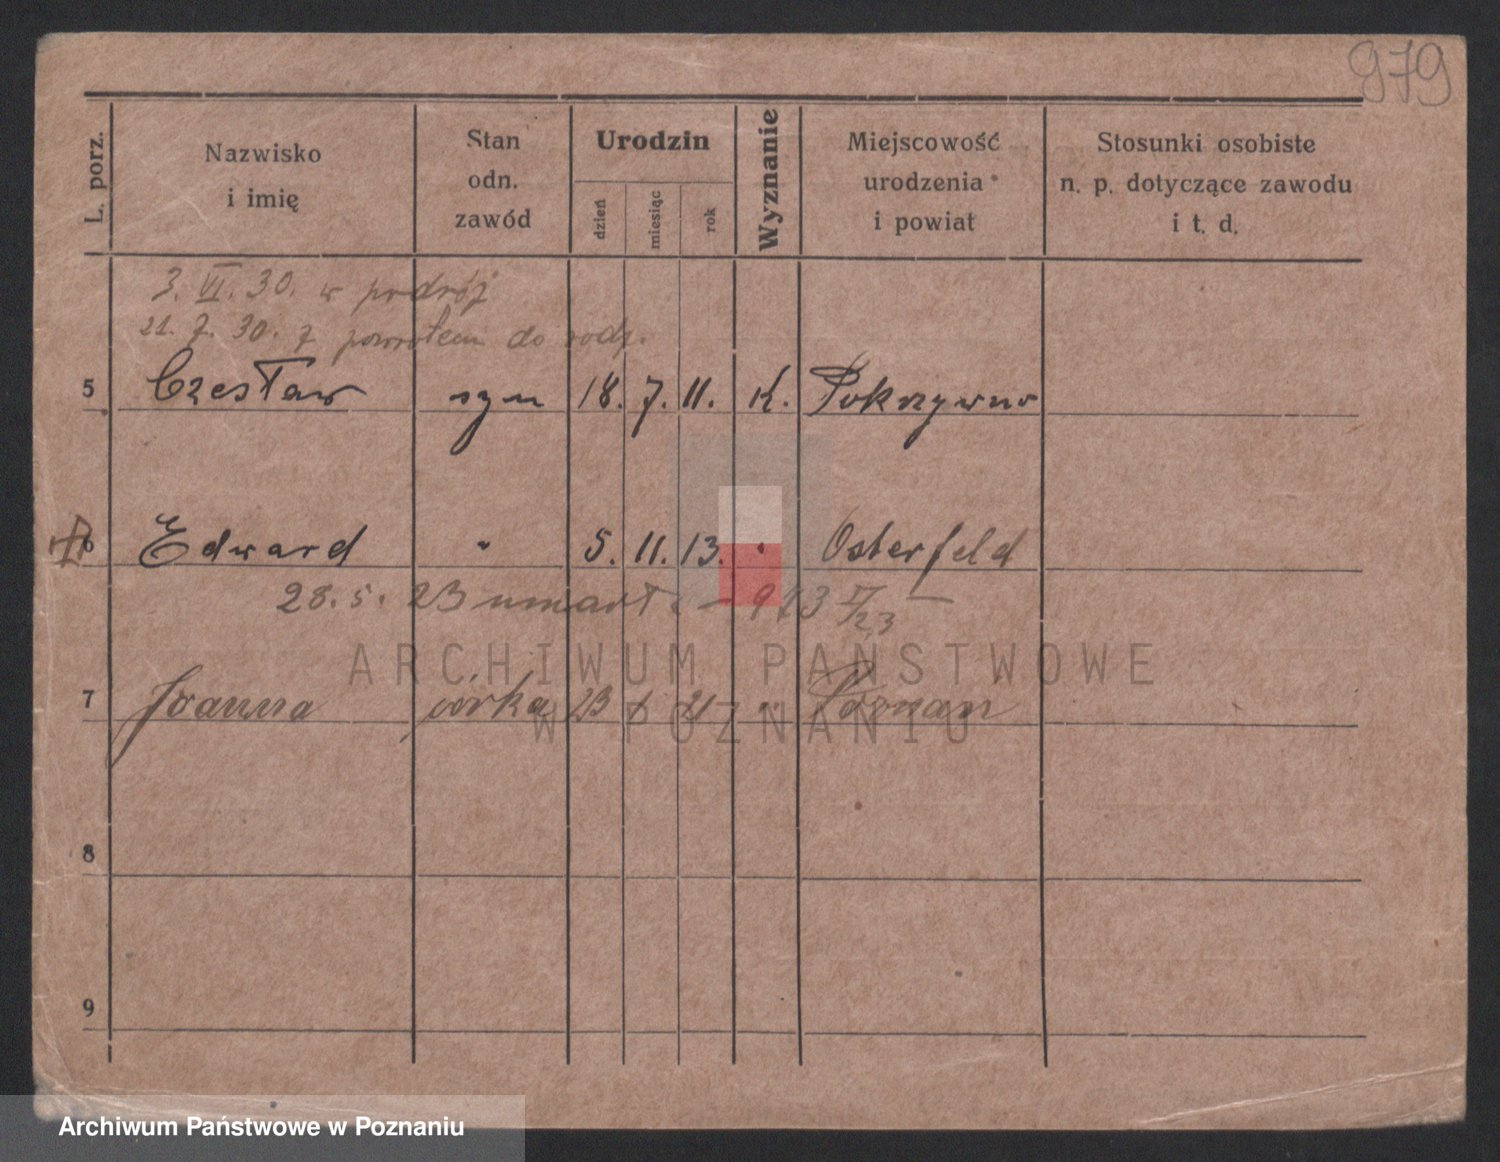 979
L. porz.
Nazwisko
i imię
Stan
odn.
zawód
Urodzin
dzień
miesiąc
rok
Wyznanie
Miejscowość
urodzenia
i powiat
Stosunki osobiste
n. p. dotyczące zawodu
i t. d.
3. VI. 30. w podróż
21. 7. 30. z powrotem do rodz.
5 Czesław syn 18. 7. 11. K. Pokrzywno
6 Edward " 5. 11. 13. " Osterfeld
28. 5. 23 umarł
7 Joanna córka 23 21 " Poznań
8
9
ARCHIWUM PAŃSTWOWE
W POZNANIU
Archiwum Państwowe w Poznaniu